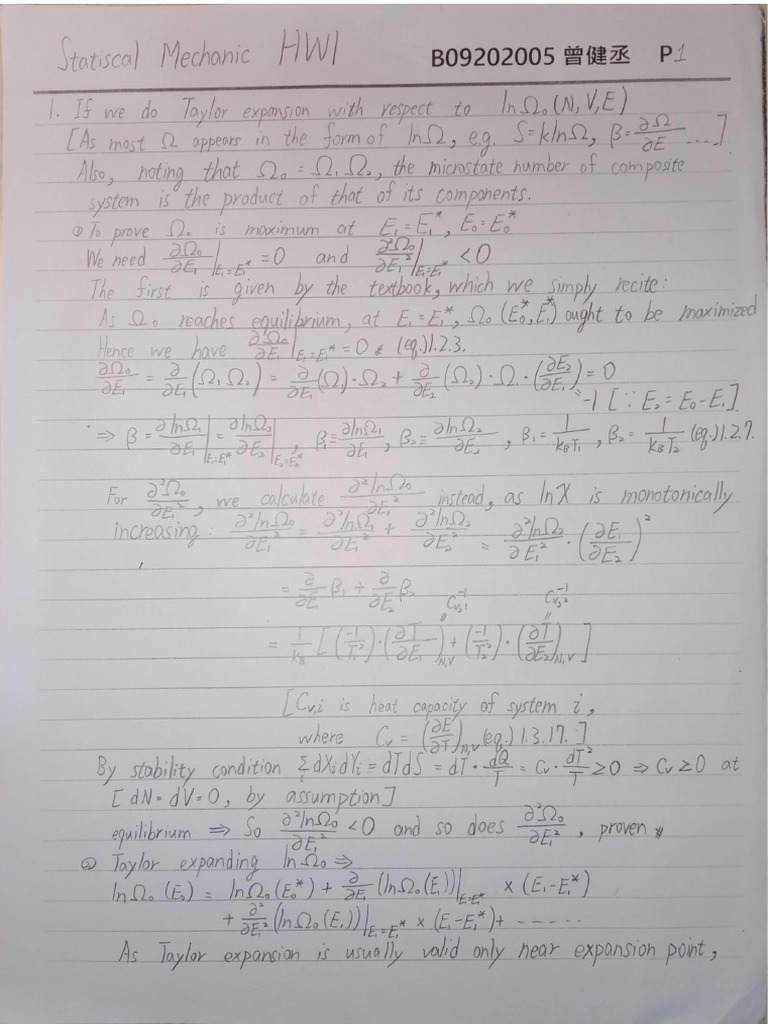 Statiscal Mechanic HW1 B09202005 曾健丞 P1
1. If we do Taylor expansion with respect to lnΩ₀(N,V,E)
[As most Ω appears in the form of lnΩ, e.g. S=klnΩ, β=∂Ω/∂E ....]
Also, noting that Ω₀=Ω₁Ω₂, the microstate number of composite
system is the product of that of its components.
① To prove Ω₀ is maximum at E₁=E₁*, E₀=E₀*
We need ∂Ω₀/∂E₁|E₁=E₁* =0 and ∂²Ω₀/∂E₁²|E₁=E₁* <0
The first is given by the textbook, which we simply recite:
As Ω₀ reaches equilibrium, at E₁=E₁*, Ω₀(E₀*,E₁*) ought to be maximized
Hence we have ∂Ω₀/∂E₁|E₁=E₁* =0 (eq.)1.2.3.
∂Ω₀/∂E₁ = ∂/∂E₁(Ω₁Ω₂) = ∂/∂E₁(Ω₁)·Ω₂ + ∂/∂E₂(Ω₂)·Ω₁·(∂E₂/∂E₁) =0
=-1 [∵ E₂=E₀-E₁]
⇒ β=∂lnΩ₁/∂E₁|E₁=E₁* = ∂lnΩ₂/∂E₂|E₂=E₂*, β₁≡∂lnΩ₁/∂E₁, β₂≡∂lnΩ₂/∂E₂, β₁=1/k_BT₁, β₂=1/k_BT₂ (eq.)1.2.7.
For ∂²Ω₀/∂E₁², we calculate ∂²lnΩ₀/∂E₁² instead, as lnX is monotonically
increasing: ∂²lnΩ₀/∂E₁² = ∂²lnΩ₁/∂E₁² + ∂²lnΩ₂/∂E₂² = ∂²lnΩ₂/∂E₁²·(∂E₁/∂E₂)²
= ∂/∂E₁ β₁ + ∂/∂E₂ β₂
C_{V,1}⁻¹ C_{V,2}⁻¹
= 1/k_B [(-1/T₁²)·(∂T/∂E₁)_{N,V} + (-1/T₂²)·(∂T/∂E₂)_{N,V}]
[C_{V,i} is heat capacity of system i,
where C_V = (∂E/∂T)_{N,V} (eq.) 1.3.17.]
By stability condition Σᵢ dXᵢdYᵢ = dTdS = dT·dQ/T = C_V·dT²/T ≥0 ⇒ C_V≥0 at
[dN=dV=0, by assumption]
equilibrium ⇒ So ∂²lnΩ₀/∂E₁² <0 and so does ∂²Ω₀/∂E₁², proven
② Taylor expanding lnΩ₀ ⇒
lnΩ₀(E₀) = lnΩ₀(E₀*) + ∂/∂E₁(lnΩ₀(E₁))|E₁=E₁* × (E₁-E₁*)
+ ∂²/∂E₁²(lnΩ₀(E₁))|E₁=E₁* × (E₁-E₁*)+ ......
As Taylor expansion is usually valid only near expansion point,